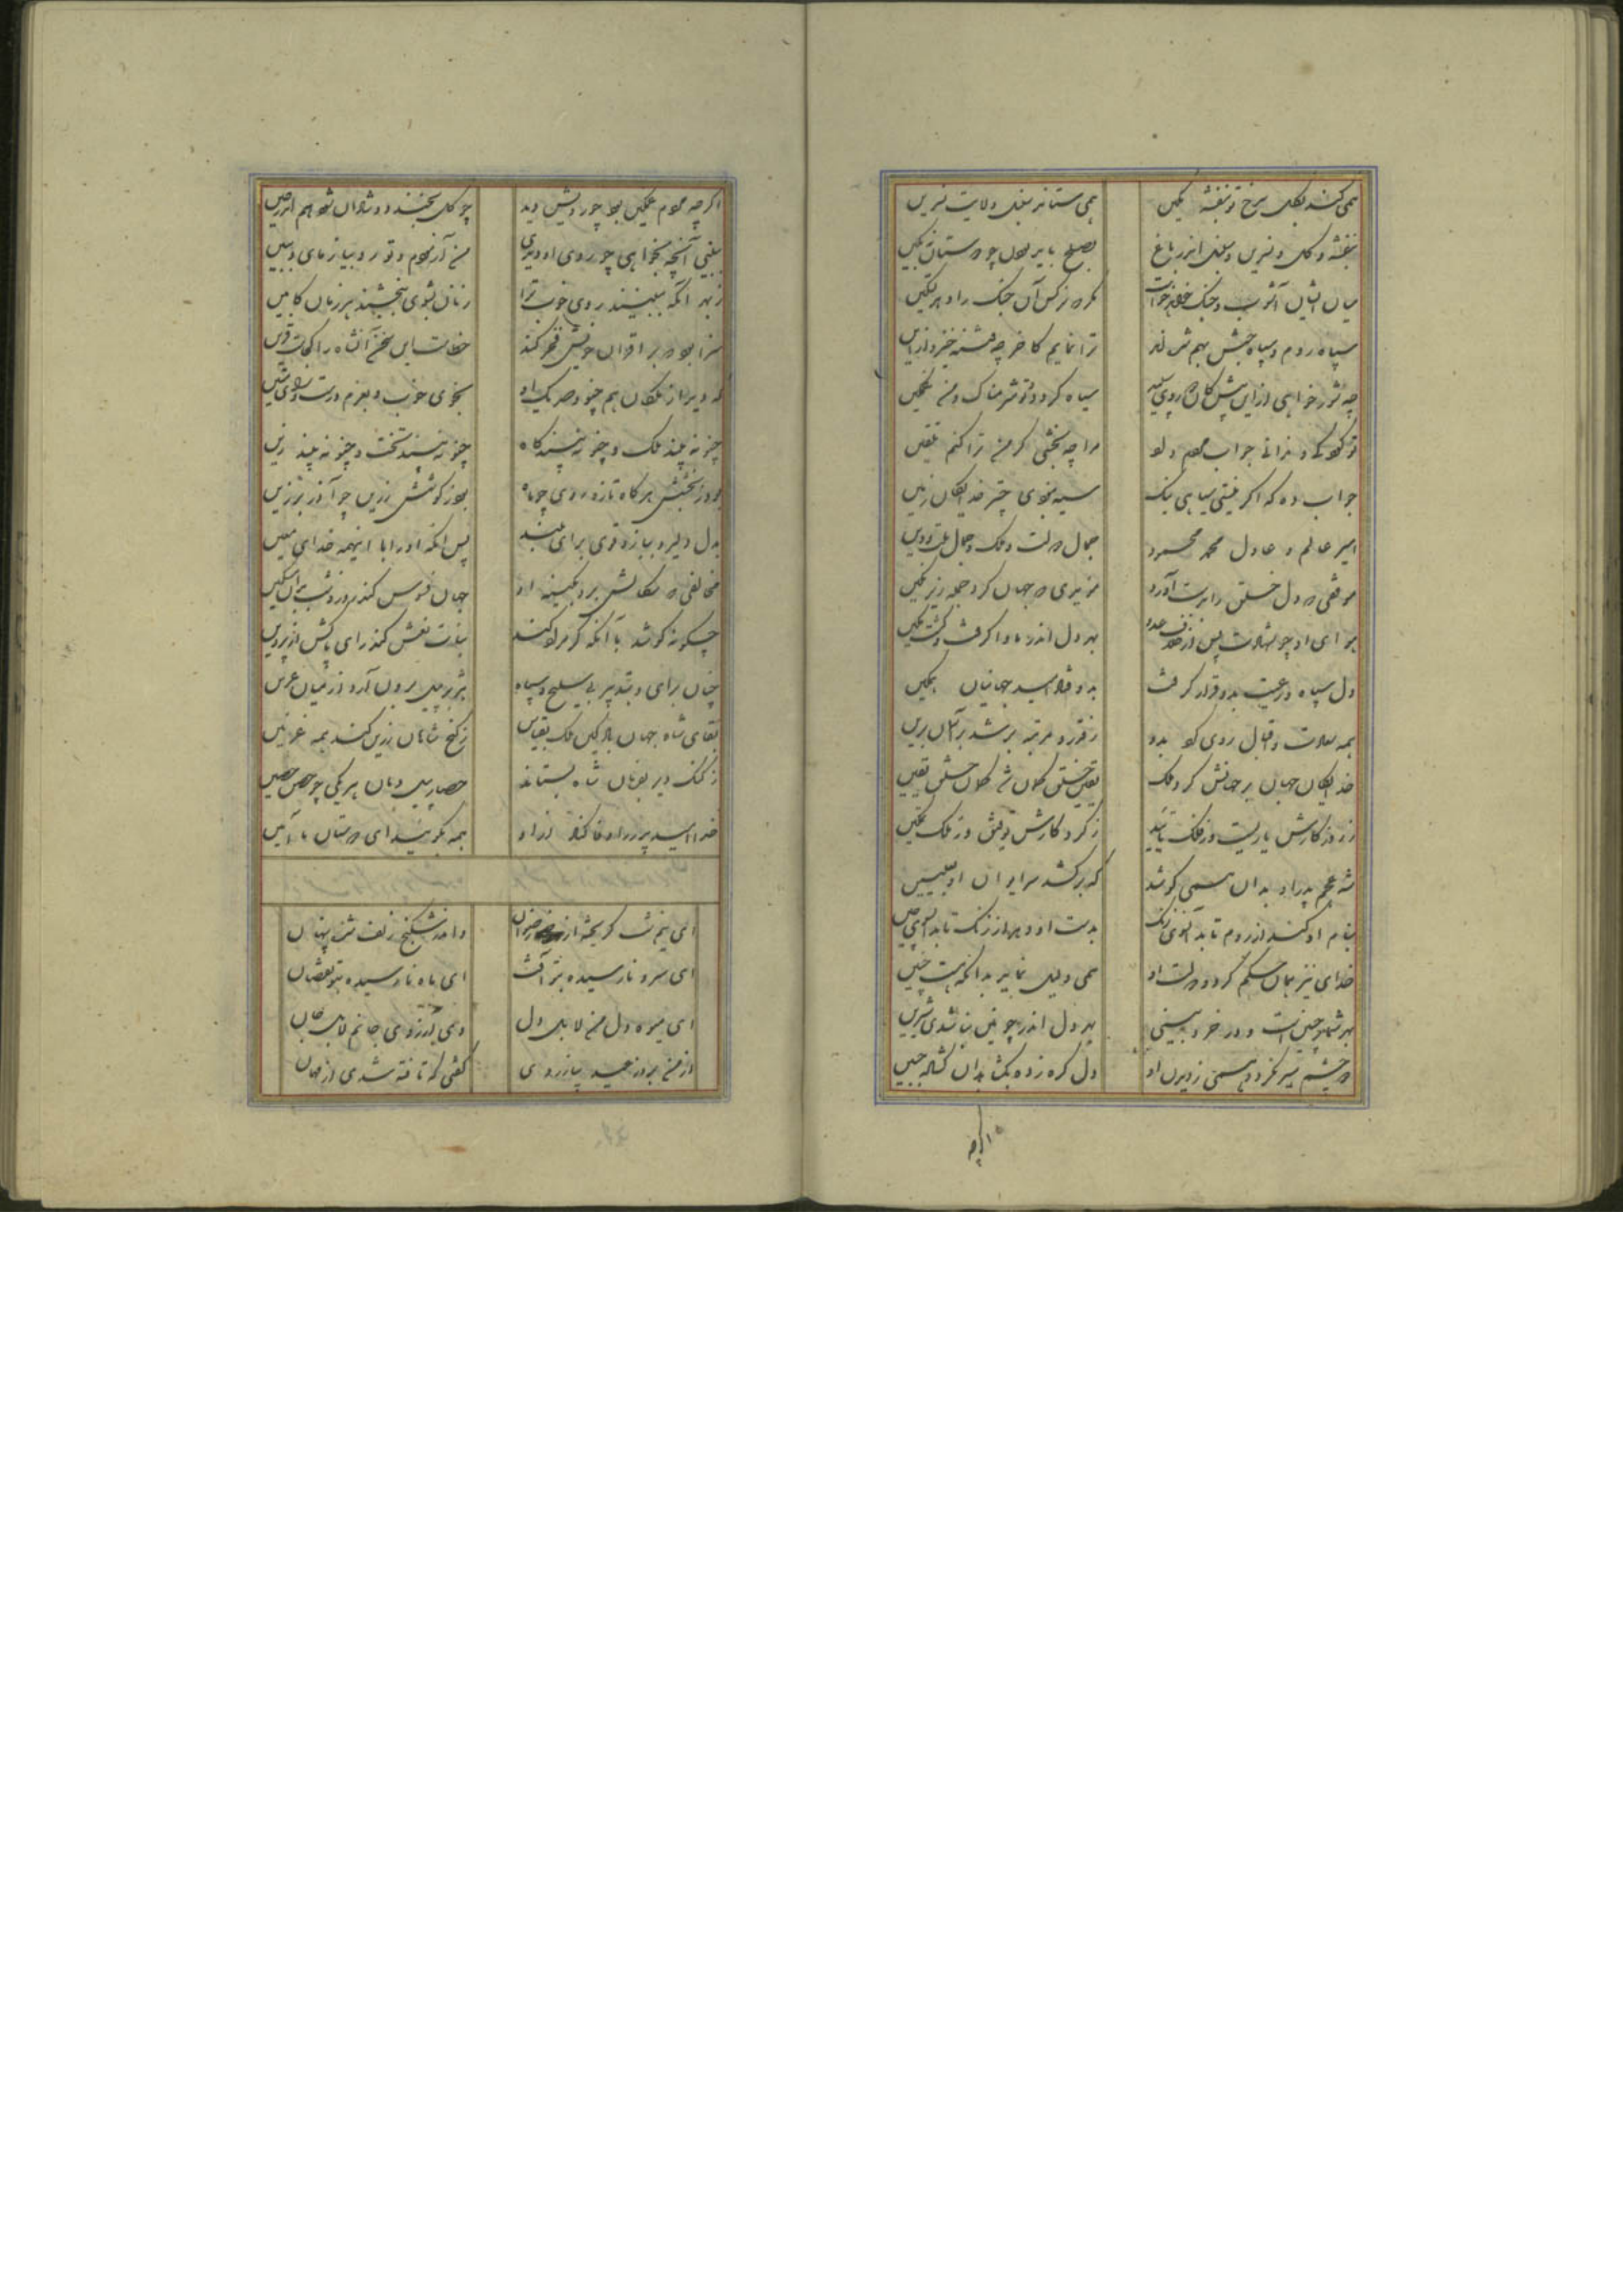 همی کند بگل سرخ بر بنفشه کمین همی ستاند سنبل ولایت نسرین
بنفشه و گل و نسرین و سنبل اندر باغ بصلح باید بودن چو دوستان نه بکین
میان ایشان آشوب و جنگ خواهد خاست مگر که نرگس آن جنگ را دهد تسکین
سپاه روم و سپاه حبش بهم شده‌اند ترا نمایم کاخر چه فتنه خیزد ازین
چه شور خواهی ازین بیش کان دو روی سپید سیاه گردد و تو شرمناک و من غمگین
تو کودکی و ندانی جواب مردم داد مرا چه بخشی گر من ترا کنم تلقین
جواب ده که اگر نیستی سیاهی نیک سیه نبودی چتر خدایگان زمین
امیر عالم و عادل محمد محمود جمال دولت و ملک و جمال ملت و دین
موفقی که دل خلق را بدست آورد مویدی که جهان کرد جمله زیر نگین
هوای او چو شهادت پس از خلاف عدو بهر دل اندر ماوا گرفت و گشت مکین
دل سپاه و رعیت بدو قرار گرفت بدو فتاد امید جهانیان همگین
همه سعادت و اقبال روی کرد بدو ز قدر و مرتبه بر شد بر آسمان برین
خدایگان جهان بر جهانش کرد ملک
ز روزگارش یاریست وز فلک تایید ز کردگارش توفیق وز ملک تمکین
شه عجم پدر او بدان همی کوشد که برکشد سر ایوان او بعلیین
بنام او کند از روم تا بدان سوی زنگ بدست او دهد از زنگ تا بدان سوی چین
خدای نیز همان حکم کرد و دولت او همی دلیل نماید بدانکه هست چنین
بهر شمار چنینست و در خرد بینی بهر دل اندر چونین بباشدی شیرین
که چشم سیر نگردد همی ز دیدن او دل گره زده بگشاید آن گشاده جبین
اگرچه
اگر چه مردم غمگین بود چو رویش دید چو گل بخندد و شادان شود هم اندر حین
ببینی آنچه بخواهی چو روی او دیدی من آزمودم و تو رو بیازمای و ببین
ز بهر آنکه ببینند روی خوب ترا زنان بشوی ببخشند هر زمان کابین
سزا بود که بر اقران خویش فخر کند خطاست این سخن آن شاه را کجاست قرین
که دید از ملکان هم چنو و صد یک او بخوی خوب و بعزم درست و رای متین
چنو نه بیند ملک و چنو نه بیند گاه چنو نه بیند تخت و چنو نه بیند زین
بود ز بخشش هر گاه تازه روی چو ماه بود ز کوشش زرین چو آذر برزین
بدل دلیر و ببازو قوی برای بلند پس آنکه او را با اینهمه خدای معین
جهان فسوس کند روز و شب بر آن مسکین
چگونه کوشد با آنکه گر مراد کند
چنان برای و بتدبیر بی سلیح و سپاه
بقای شاه جهان باد کین ملک بقیاس ز گنج شاهان زرین کند همه غزنین
ز گنگ دیز بفرمان شاه بستاند حصار بیست و بهان هر یکی چو حصن حصین
خدا امید پدر زو وفا کناد و ازو همه بگویید ای دوستان ما آمین
ای نیم شب گریخته از رضوان و اندر شکنج زلف شده پنهان
ای سرو نارسیده بتو آفت ای ماه نارسیده بتو نقصان
ای میوه دل من لابل دل وی آرزوی جانم لابل جان
از من بروز عید بیازردی گفتی که تافته شدی از مهمان